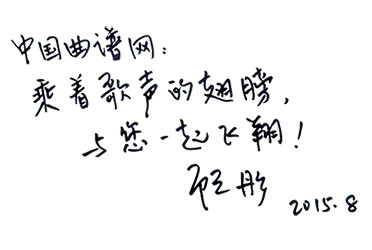 中国曲谱网：
乘着歌声的翅膀，
与您一起飞翔！
彤
2015.8